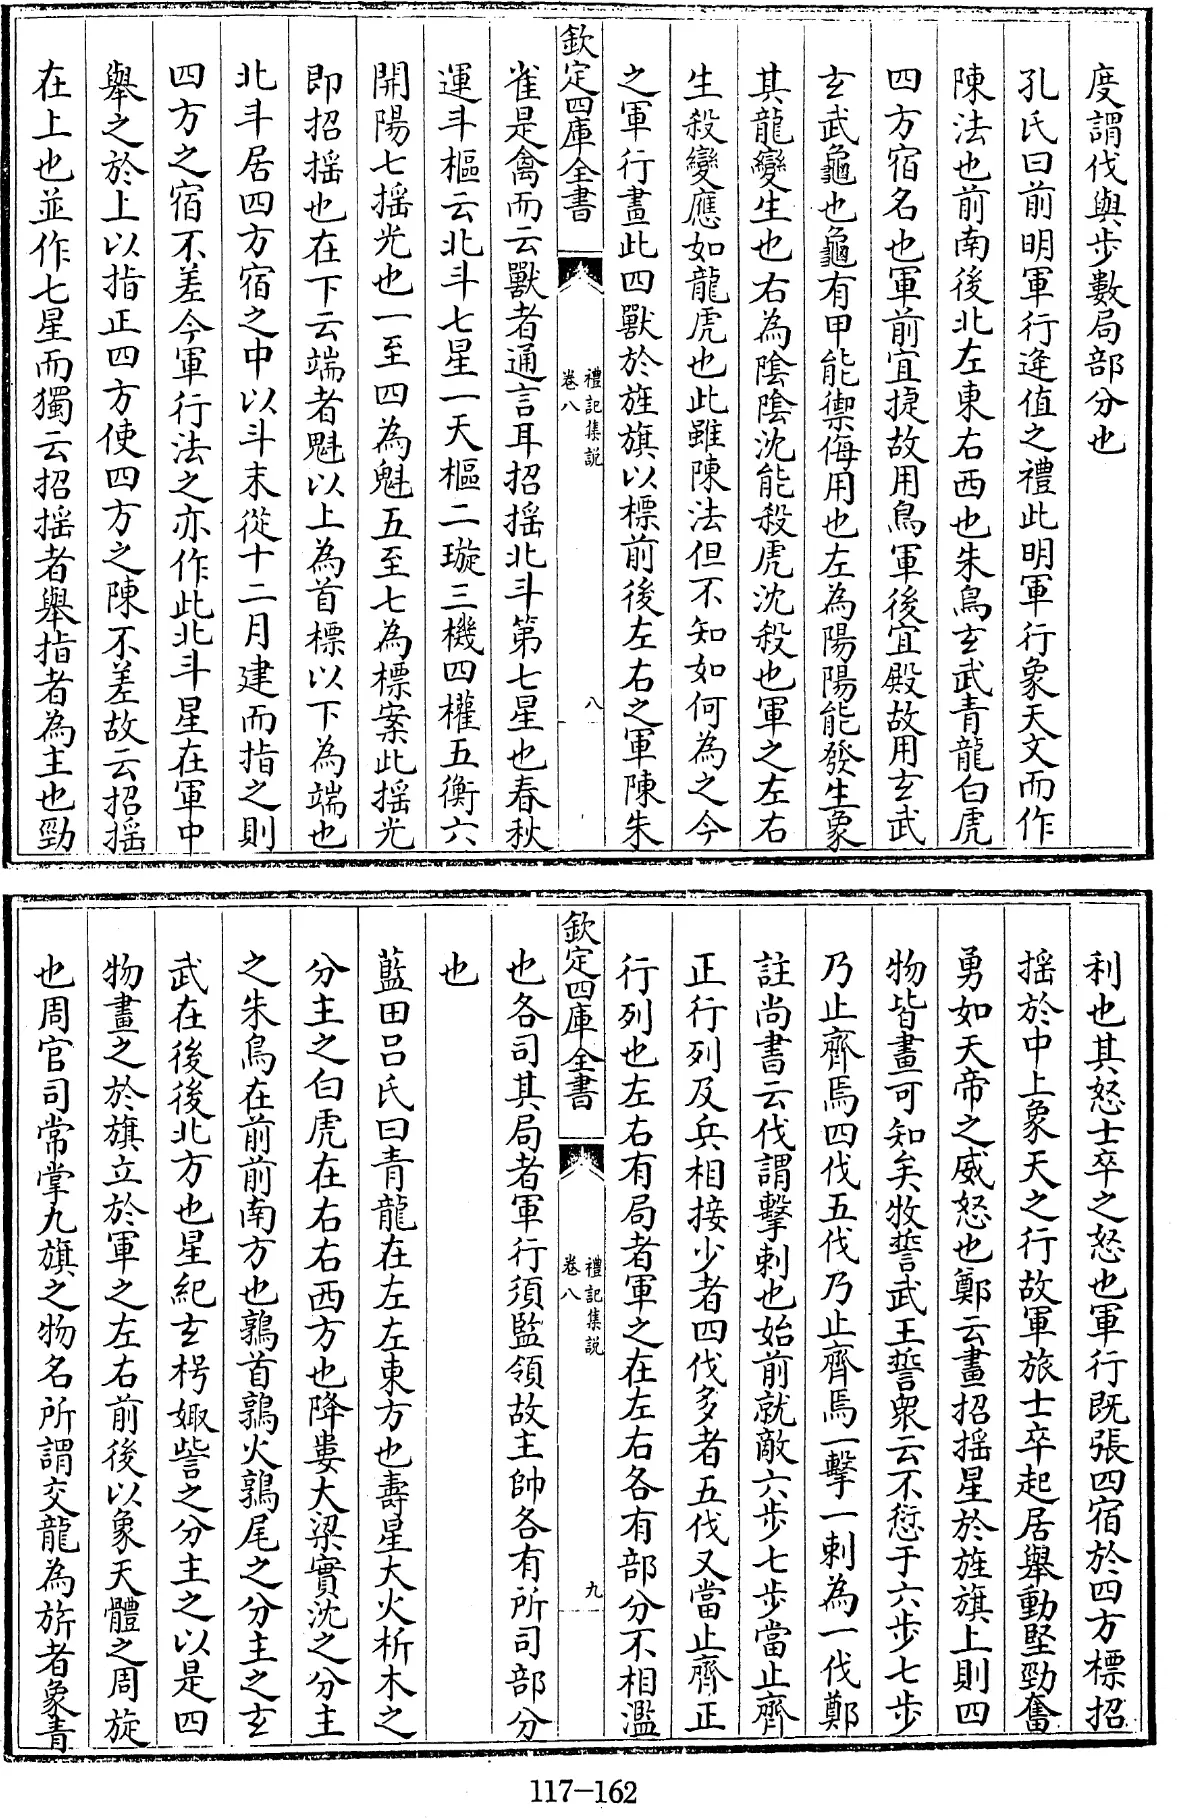 度謂伐與步數局部分也
孔氏曰前明軍行逢值之禮此明軍行象天文而作
陳法也前南後北左東右西也朱鳥玄武青龍白虎
四方宿名也軍前宜捷故用鳥軍後宜殿故用玄武
玄武龜也龜有甲能禦侮用也左為陽陽能發生象
其龍變生也右為陰陰沈能殺虎沈殺也軍之左右
生殺變應如龍虎也此雖陳法但不知如何為之今
之軍行畫此四獸於旌旗以標前後左右之軍陳朱
欽定四庫全書
禮記集說
卷八
八
雀是禽而云獸者通言耳招揺北斗第七星也春秋
運斗樞云北斗七星一天樞二璇三機四權五衡六
開陽七揺光也一至四為魁五至七為標案此揺光
即招揺也在下云端者魁以上為首標以下為端也
北斗居四方宿之中以斗末從十二月建而指之則
四方之宿不差今軍行法之亦作此北斗星在軍中
舉之於上以指正四方使四方之陳不差故云招揺
在上也並作七星而獨云招揺者舉指者為主也勁
利也其怒士卒之怒也軍行既張四宿於四方標招
揺於中上象天之行故軍旅士卒起居舉動堅勁奮
勇如天帝之威怒也鄭云畫招揺星於旌旗上則四
物皆畫可知矣牧誓武王誓衆云不愆于六步七步
乃止齊焉四伐五伐乃止齊焉一擊一刺為一伐鄭
註尚書云伐謂擊刺也始前就敵六步七步當止齊
正行列及兵相接少者四伐多者五伐又當止齊正
行列也左右有局者軍之在左右各有部分不相濫
欽定四庫全書
禮記集說
卷八
九
也各司其局者軍行須監領故主帥各有所司部分
也
藍田呂氏曰青龍在左左東方也壽星大火析木之
分主之白虎在右右西方也降婁大梁實沈之分主
之朱鳥在前前南方也鶉首鶉火鶉尾之分主之玄
武在後後北方也星紀玄枵娵訾之分主之以是四
物畫之於旗立於軍之左右前後以象天體之周旋
也周官司常掌九旗之物名所謂交龍為旂者象青
117-162